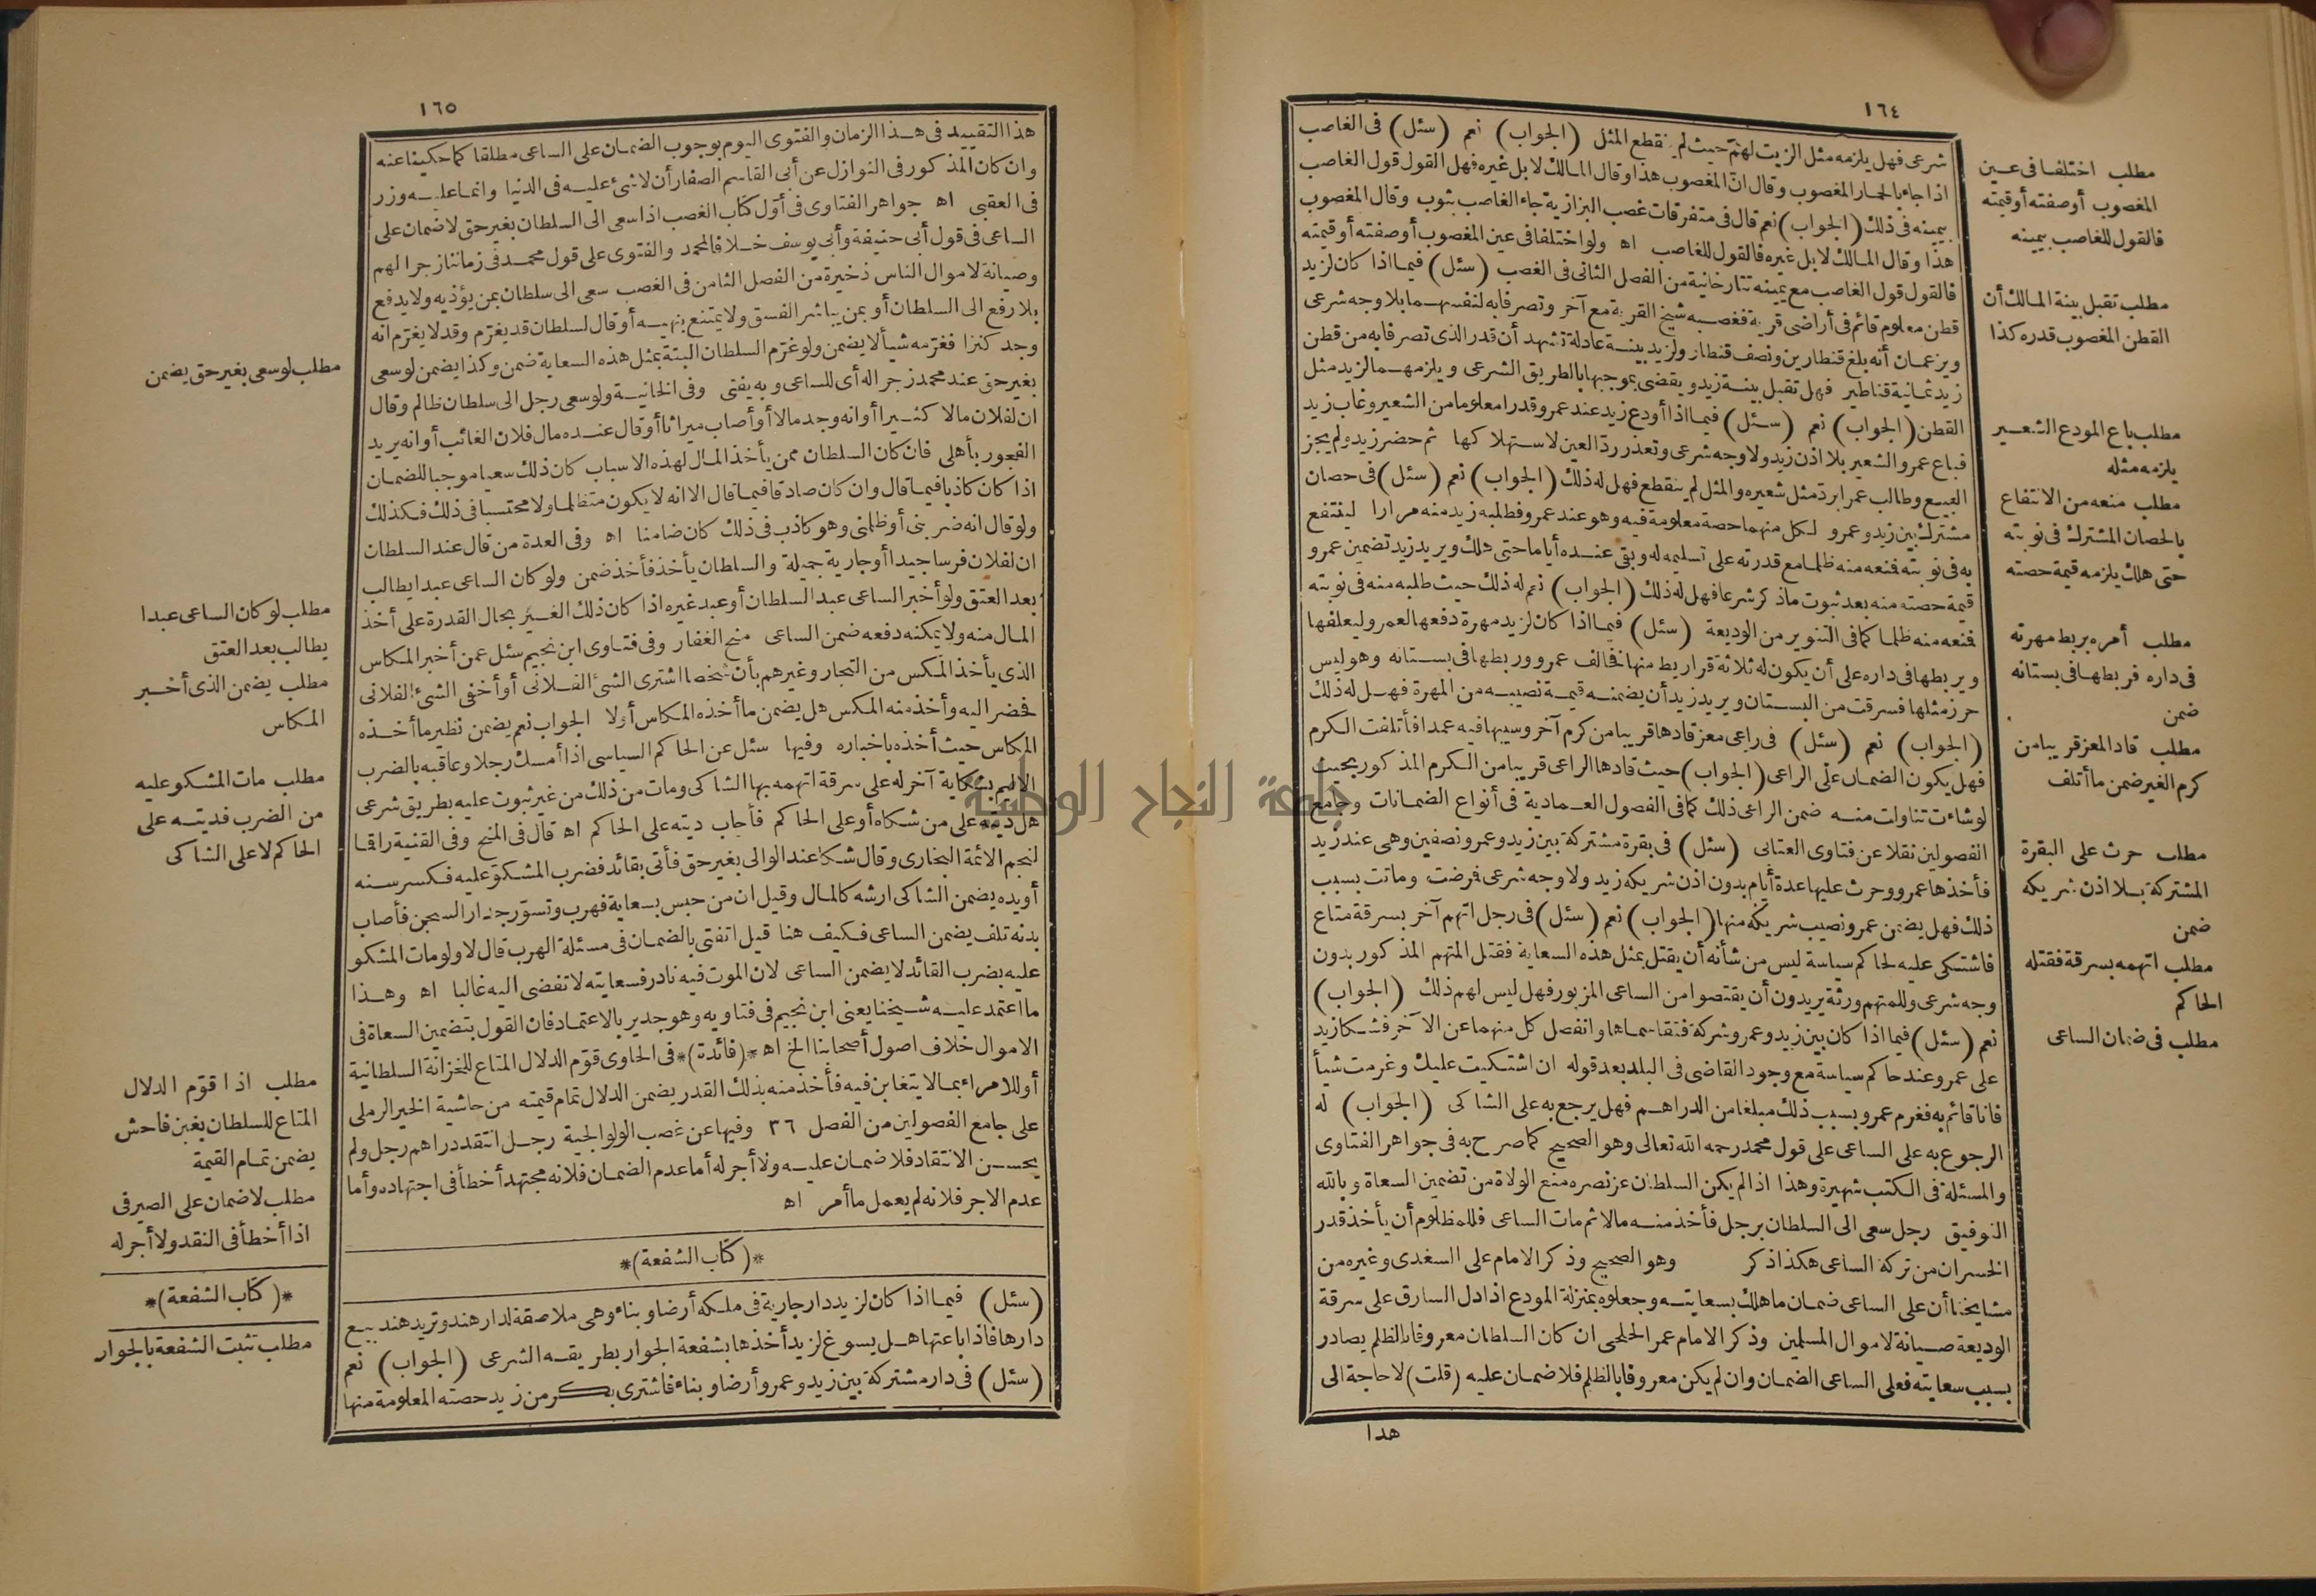 ١٦٤
شرعى فهل يلزمه مثل الزيت لهم حيث لم ينقطع المثل (الجواب) نعم (سئل) فى الغاصب
اذا جاء بالحمار المغصوب وقال انّ المغصوب هذا وقال المالك لا بل غيره فهل القول قول الغاصب
بيمينه فى ذلك (الجواب) نعم قال فى متفرقات غصب البزازية جاء الغاصب بثوب وقال المغصوب
هذا وقال المالك لا بل غيره فالقول للغاصب اه ولو اختلفا فى عين المغصوب أو صفته أو قيمته
فالقول قول الغاصب مع يمينه تتارخانية من الفصل الثانى فى الغصب (سئل) فيما اذا كان لزيد
قطن معلوم قائم فى أراضى قرية فغصبه شيخ القرية مع آخر وتصرفا به لنفسهما بلا وجه شرعى
ويزعمان أنه بلغ قنطارين ونصف قنطار ولزيد بينة عادلة تشهد أن قدر الذى تصرفا به من قطن
زيد ثمانية قناطير فهل تقبل بينة زيد ويقضى بموجبها بالطريق الشرعى ويلزمهما لزيد مثل
القطن (الجواب) نعم (سئل) فيما اذا أودع زيد عند عمرو قدرا معلوما من الشعير وغاب زيد
فباع عمرو الشعير بلا اذن زيد ولا وجه شرعى وتعذر ردّ العين لاستهلاكها ثم حضر زيد ولم يجز
البيع وطالب عمرا برد مثل شعيره والمثل لم ينقطع فهل له ذلك (الجواب) نعم (سئل) فى حصان
مشترك بين زيد وعمرو لكل منهما حصة معلومة فيه وهو عند عمرو فطلبه زيد منه مرارا لينتفع
به فى نوبته فمنعه منه ظلما مع قدرته على تسليمه له وبقى عنده أياما حتى هلك ويريد زيد تضمين عمرو
قيمة حصته منه بعد ثبوت ماذكر شرعا فهل له ذلك (الجواب) نعم له ذلك حيث طلبه منه فى نوبته
فمنعه منه ظلما كما فى التنوير من الوديعة (سئل) فيما اذا كان لزيد مهرة دفعها لعمرو ليعلفها
ويربطها فى داره على أن يكون له ثلاثة قراريط منها فخالف عمرو وربطها فى بستانه وهو ليس
حرز مثلها فسرقت من البستان ويريد زيد أن يضمنه قيمة نصيبه من المهرة فهل له ذلك
(الجواب) نعم (سئل) فى راعى معز قادها قريبا من كرم آخر وسيبها فيه عمدا فأتلفت الكرم
فهل يكون الضمان على الراعى (الجواب) حيث قادها الراعى قريبا من الكرم المذكور بحيث
لو شاءت تناولت منه ضمن الراعى ذلك كما فى الفصول العمادية فى أنواع الضمانات وجامع
الفصولين نقلا عن فتاوى العتابى (سئل) فى بقرة مشتركة بين زيد وعمرو نصفين وهى عند زيد
فأخذها عمرو وحرث عليها عدة أيام بدون اذن شريكه زيد ولا وجه شرعى فمرضت وماتت بسبب
ذلك فهل يضمن عمرو نصيب شريكه منها (الجواب) نعم (سئل) فى رجل اتهم آخر بسرقة متاع
فاشتكى عليه لحاكم سياسة ليس من شأنه أن يقتل بمثل هذه السعاية فقتل المتهم المذكور بدون
وجه شرعى وللمتهم ورثة يريدون أن يقتصوا من الساعى المزبور فهل ليس لهم ذلك (الجواب)
نعم (سئل) فيما اذا كان بين زيد وعمرو شركة فتقاسماها وانفصل كل منهما عن الآخر فشكا زيد
على عمرو عند حاكم سياسة مع وجود القاضى فى البلد بعد قوله ان اشتكيت عليك وغرمت شيأ
فانا قائم به فغرم عمرو بسبب ذلك مبلغا من الدراهم فهل يرجع به على الشاكى (الجواب) له
الرجوع به على الساعى على قول محمد رحمه الله تعالى وهو الصحيح كما صرح به فى جواهر الفتاوى
والمسئلة فى الكتب شهيرة وهذا اذا لم يكن السلطان عز نصره منع الولاة من تضمين السعاة وبالله
التوفيق رجل سعى الى السلطان برجل فأخذ منه مالا ثم مات الساعى فللمظلوم أن يأخذ قدر
الخسران من تركة الساعى هكذا ذكر وهو الصحيح وذكر الامام على السغدى وغيره من
مشايخنا أن على الساعى ضمان ما هلك بسعايته وجعلوه بمنزلة المودع اذا دل السارق على سرقة
الوديعة صيانة لاموال المسلمين وذكر الامام عمر الحلمى ان كان السلطان معروفا بالظلم يصادر
بسبب سعايته فعلى الساعى الضمان وان لم يكن معروفا بالظلم فلا ضمان عليه (قلت) لا حاجة الى
هذا
مطلب اختلفا فى عين
المغصوب أو صفته أو قيمته
فالقول للغاصب بيمينه
مطلب تقبل بينة المالك أن
القطن المغصوب قدره كذا
مطلب باع المودع الشعير
يلزمه مثله
مطلب منعه من الانتفاع
بالحصان المشترك فى نوبته
حتى هلك يلزمه قيمة حصته
مطلب أمره بربط مهرته
فى داره فربطها فى بستانه
ضمن
مطلب قاد المعز قريبا من
كرم الغير ضمن ما أتلف
مطلب حرث على البقرة
المشتركة بلا اذن شريكه
ضمن
مطلب اتهمه بسرقة فقتله
الحاكم
مطلب فى ضمان الساعى
١٦٥
هذا التقييد فى هذا الزمان والفتوى اليوم بوجوب الضمان على الساعى مطلقا كما حكينا عنه
وان كان المذكور فى النوازل عن أبى القاسم الصفار أن لا شئ عليه فى الدنيا وانما عليه وزر
فى العقبى اه جواهر الفتاوى فى أوّل كتاب الغصب اذا سعى الى السلطان بغير حق لا ضمان على
الساعى فى قول أبى حنيفة وأبى يوسف خلافا لمحمد والفتوى على قول محمد فى زماننا زجرا لهم
وصيانة لاموال الناس ذخيرة من الفصل الثامن فى الغصب سعى الى سلطان بمن يؤذيه ولا يدفع
بلا رفع الى السلطان أو بمن يباشر الفسق ولا يمتنع بنهيه أو قال لسلطان قد يغرّم وقد لا يغرّم انه
وجد كنزا فغرّمه شيأ لا يضمن ولو غرّم السلطان البتة بمثل هذه السعاية ضمن وكذا يضمن لو سعى
بغير حق عند محمد زجرا له أى للساعى وبه يفتى وفى الخانية ولو سعى رجل الى سلطان ظالم وقال
ان لفلان مالا كثيرا أو انه وجد مالا أو أصاب ميراثا أو قال عنده مال فلان الغائب أو انه يريد
الفجور بأهلى فان كان السلطان ممن يأخذ المال لهذه الاسباب كان ذلك سعيا موجبا للضمان
اذا كان كاذبا فيما قال وان كان صادقا فيما قال الا انه لا يكون متظلما ولا محتسبا فى ذلك فكذلك
ولو قال انه ضربنى أو ظلمنى وهو كاذب فى ذلك كان ضامنا اه وفى العدة من قال عند السلطان
ان لفلان فرسا جيدا أو جارية جميلة والسلطان يأخذ فأخذ ضمن ولو كان الساعى عبدا يطالب
بعد العتق ولو أخبر الساعى عبد السلطان أو عبد غيره اذا كان ذلك الغير بحال القدرة على أخذ
المال منه ولا يمكنه دفعه ضمن الساعى منح الغفار وفى فتاوى ابن نجيم سئل عمن أخبر المكاس
الذى يأخذ المكس من التجار وغيرهم بأن شخصا اشترى الشئ الفلانى أو أخفى الشئ الفلانى
فحضر اليه وأخذ منه المكس هل يضمن ما أخذه المكاس أولا الجواب نعم يضمن نظير ما أخذه
المكاس حيث أخذه باخباره وفيها سئل عن الحاكم السياسى اذا أمسك رجلا وعاقبه بالضرب
الاليم بشكاية آخر له على سرقة اتهمه بها الشاكى ومات من ذلك من غير ثبوت عليه بطريق شرعى
هل ديته على من شكاه أو على الحاكم فأجاب ديته على الحاكم اه قال فى المنح وفى القنية راقما
لنجم الائمة البخارى وقال شكا عند الوالى بغير حق فأتى بقائد فضرب المشكوّ عليه فكسر سنه
أو يده يضمن الشاكى ارشه كالمال وقيل ان من حبس بسعاية فهرب وتسوّر جدار السجن فأصاب
بدنه تلف يضمن الساعى فكيف هنا قيل اتفتى بالضمان فى مسئلة الهرب قال لا ولو مات المشكو
عليه بضرب القائد لا يضمن الساعى لان الموت فيه نادر فسعايته لا تفضى اليه غالبا اه وهذا
ما اعتمد عليه شيخنا يعنى ابن نجيم فى فتاويه وهو جدير بالاعتماد فان القول بتضمين السعاة فى
الاموال خلاف اصول أصحابنا الخ اه *(فائدة)* فى الحاوى قوّم الدلال المتاع للخزانة السلطانية
أو للامراء بما لا يتغابن فيه فأخذ منه بذلك القدر يضمن الدلال تمام قيمته من حاشية الخير الرملى
على جامع الفصولين من الفصل ٣٦ وفيها عن غصب الولوالجية رجل انتقد دراهم رجل ولم
يحسن الانتقاد فلا ضمان عليه ولا أجر له أما عدم الضمان فلانه مجتهد أخطأ فى اجتهاده وأما
عدم الاجر فلانه لم يعمل ما أمر اه
*(كتاب الشفعة)*
(سئل) فيما اذا كان لزيد دار جارية فى ملكه أرضا وبناء وهى ملاصقة لدار هند وتريد هند بيع
دارها فاذا باعتها هل يسوغ لزيد أخذها بشفعة الجوار بطريقه الشرعى (الجواب) نعم
(سئل) فى دار مشتركة بين زيد وعمرو أرضا وبناء فاشترى بكر من زيد حصته المعلومة منها
مطلب لو سعى بغير حق يضمن
مطلب لو كان الساعى عبدا
يطالب بعد العتق
مطلب يضمن الذى أخبر
المكاس
مطلب مات المشكو عليه
من الضرب فديته على
الحاكم لا على الشاكى
مطلب اذا قوّم الدلال
المتاع للسلطان بغبن فاحش
يضمن تمام القيمة
مطلب لا ضمان على الصيرفى
اذا أخطأ فى النقد ولا أجر له
*(كتاب الشفعة)*
مطلب تثبت الشفعة بالجوار
جامعة النجاح الوطنية